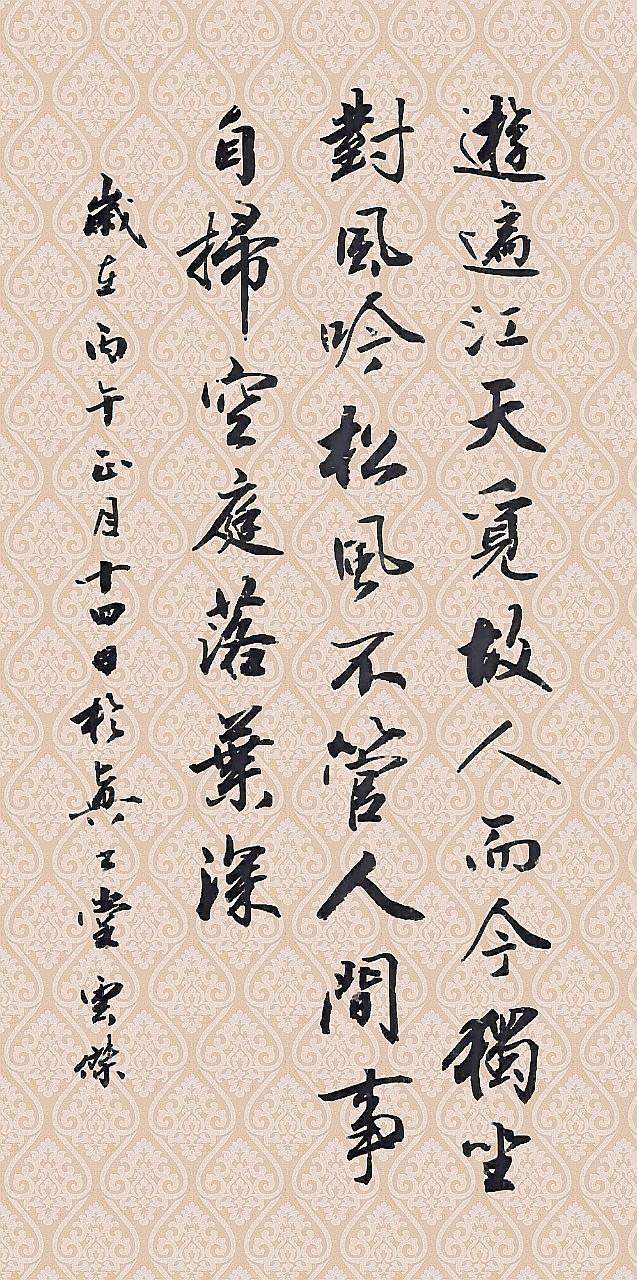 遊遍江天覓故人而今獨坐
對風吟松風不管人間事
自掃空庭落葉深
歲在丙午正月十四日於真士堂雲傑